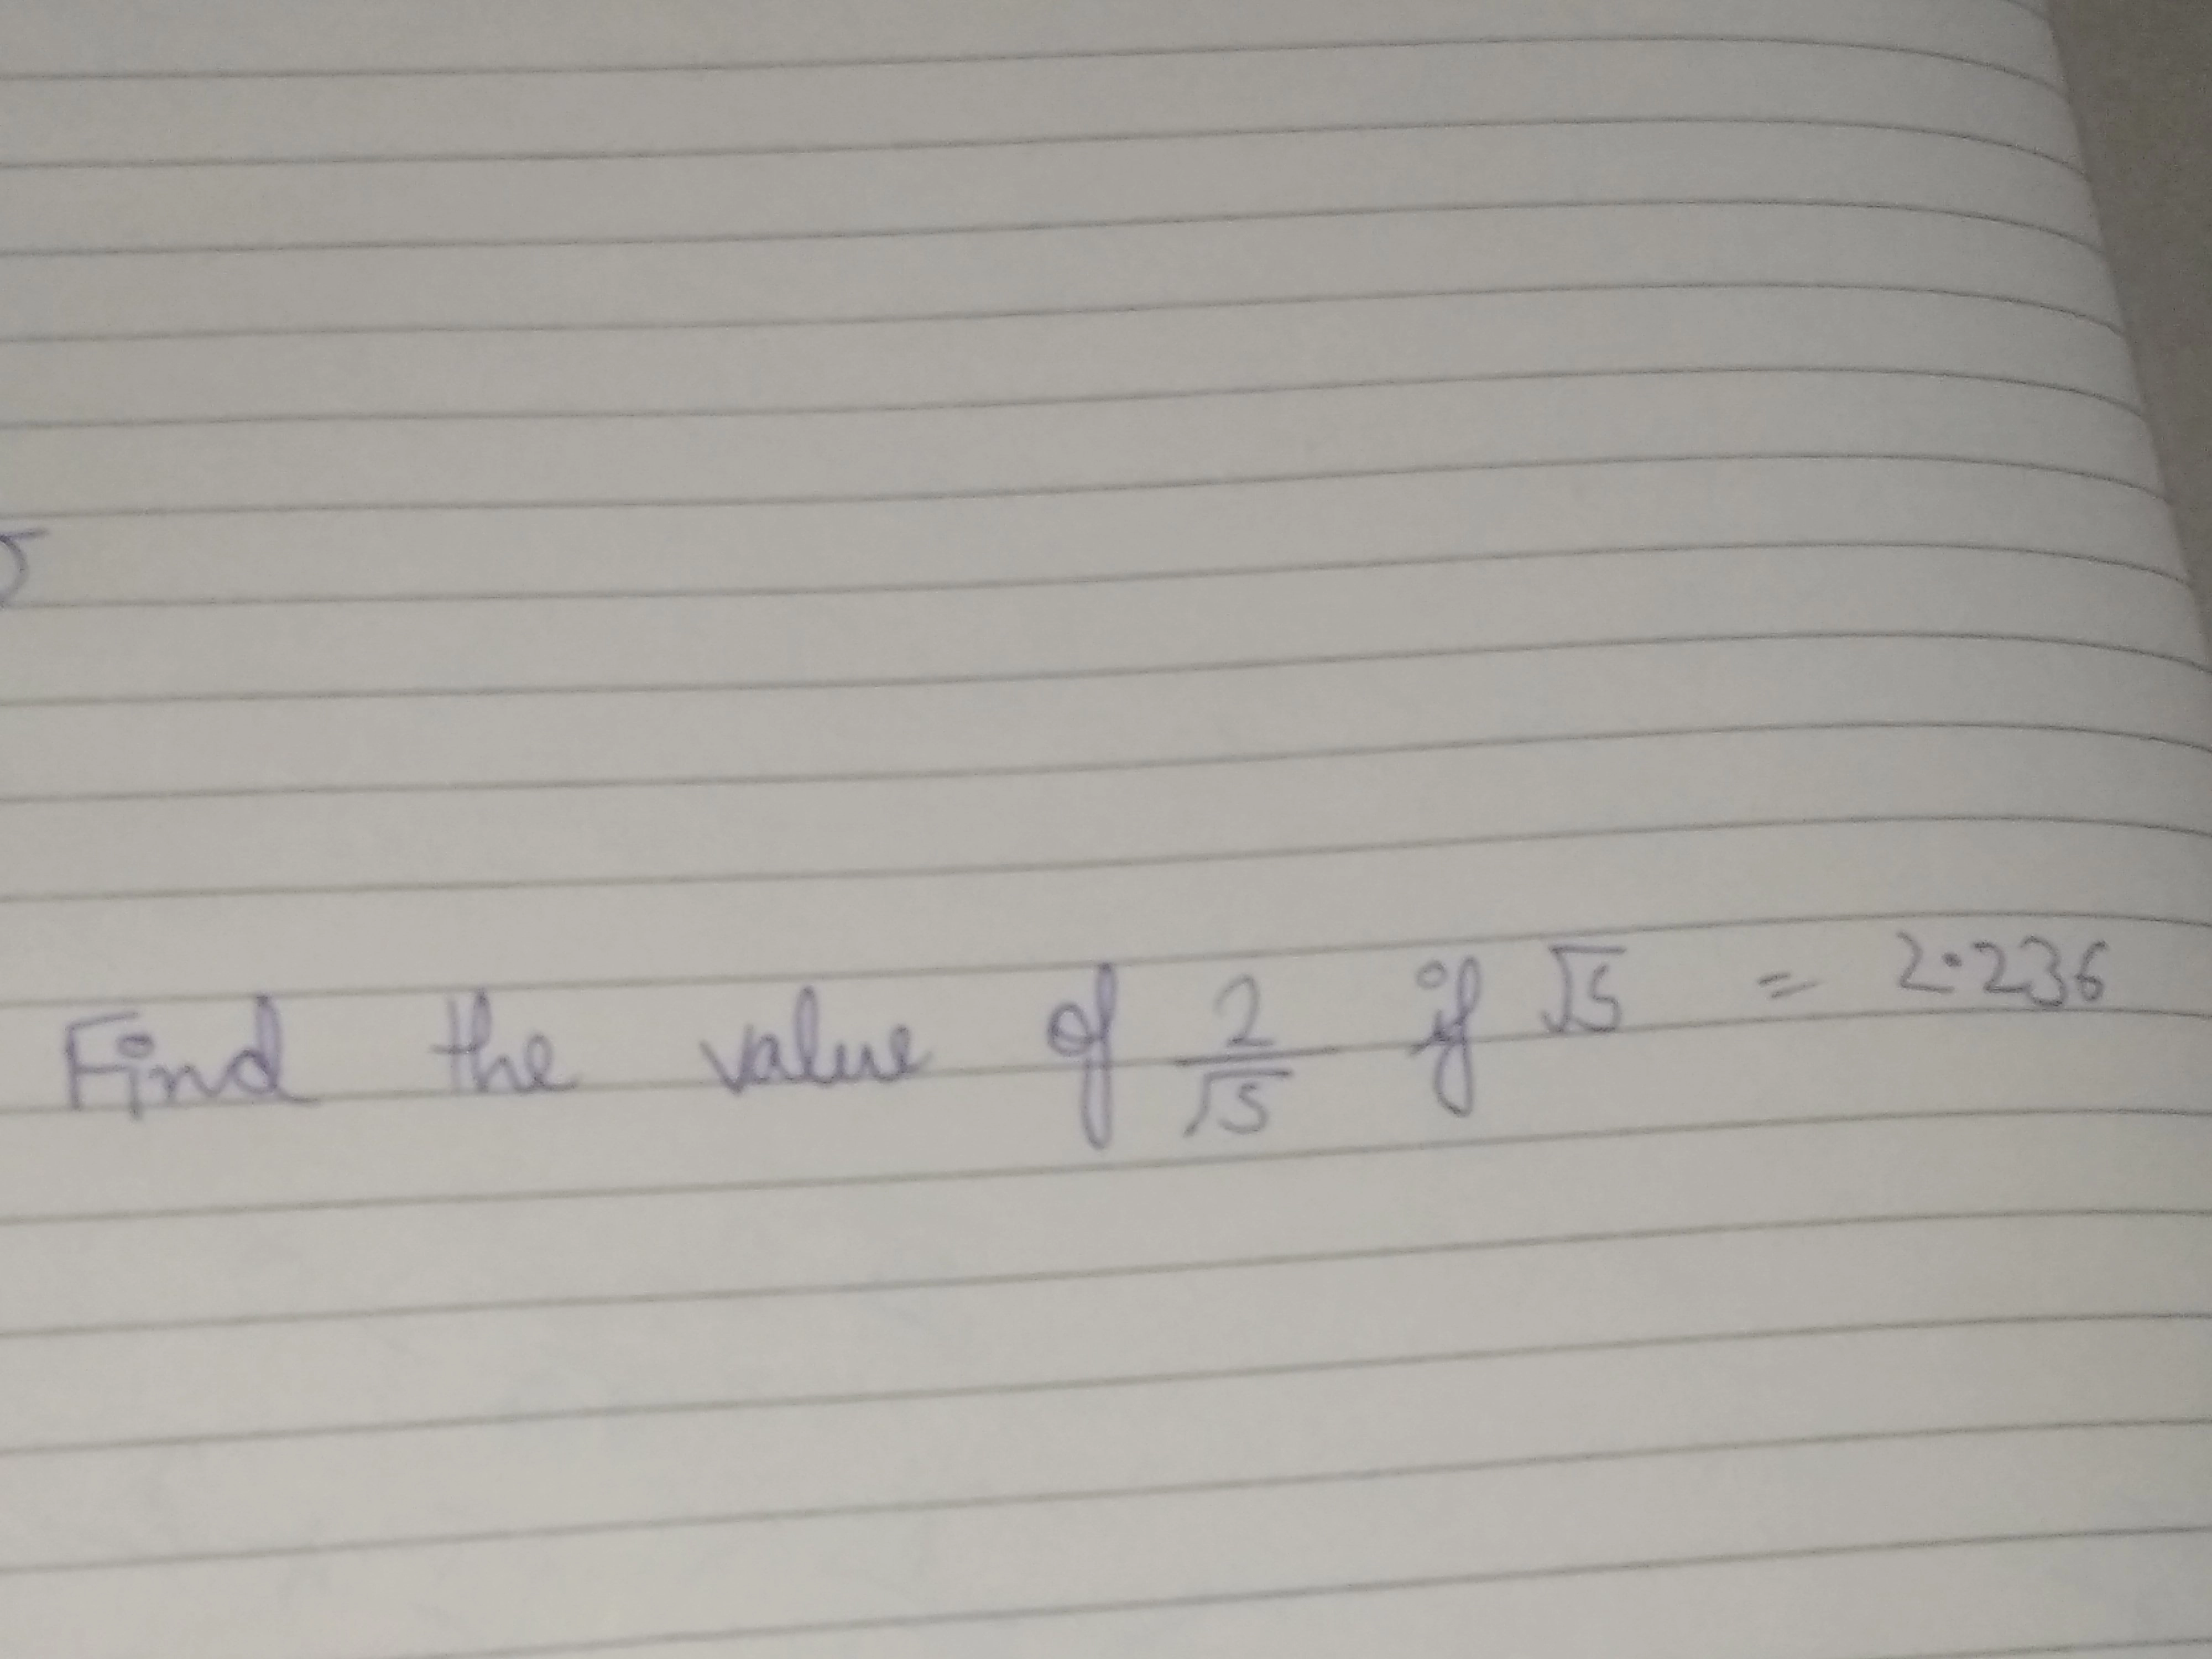 Find the value of 2/√5 if √5 = 2.236